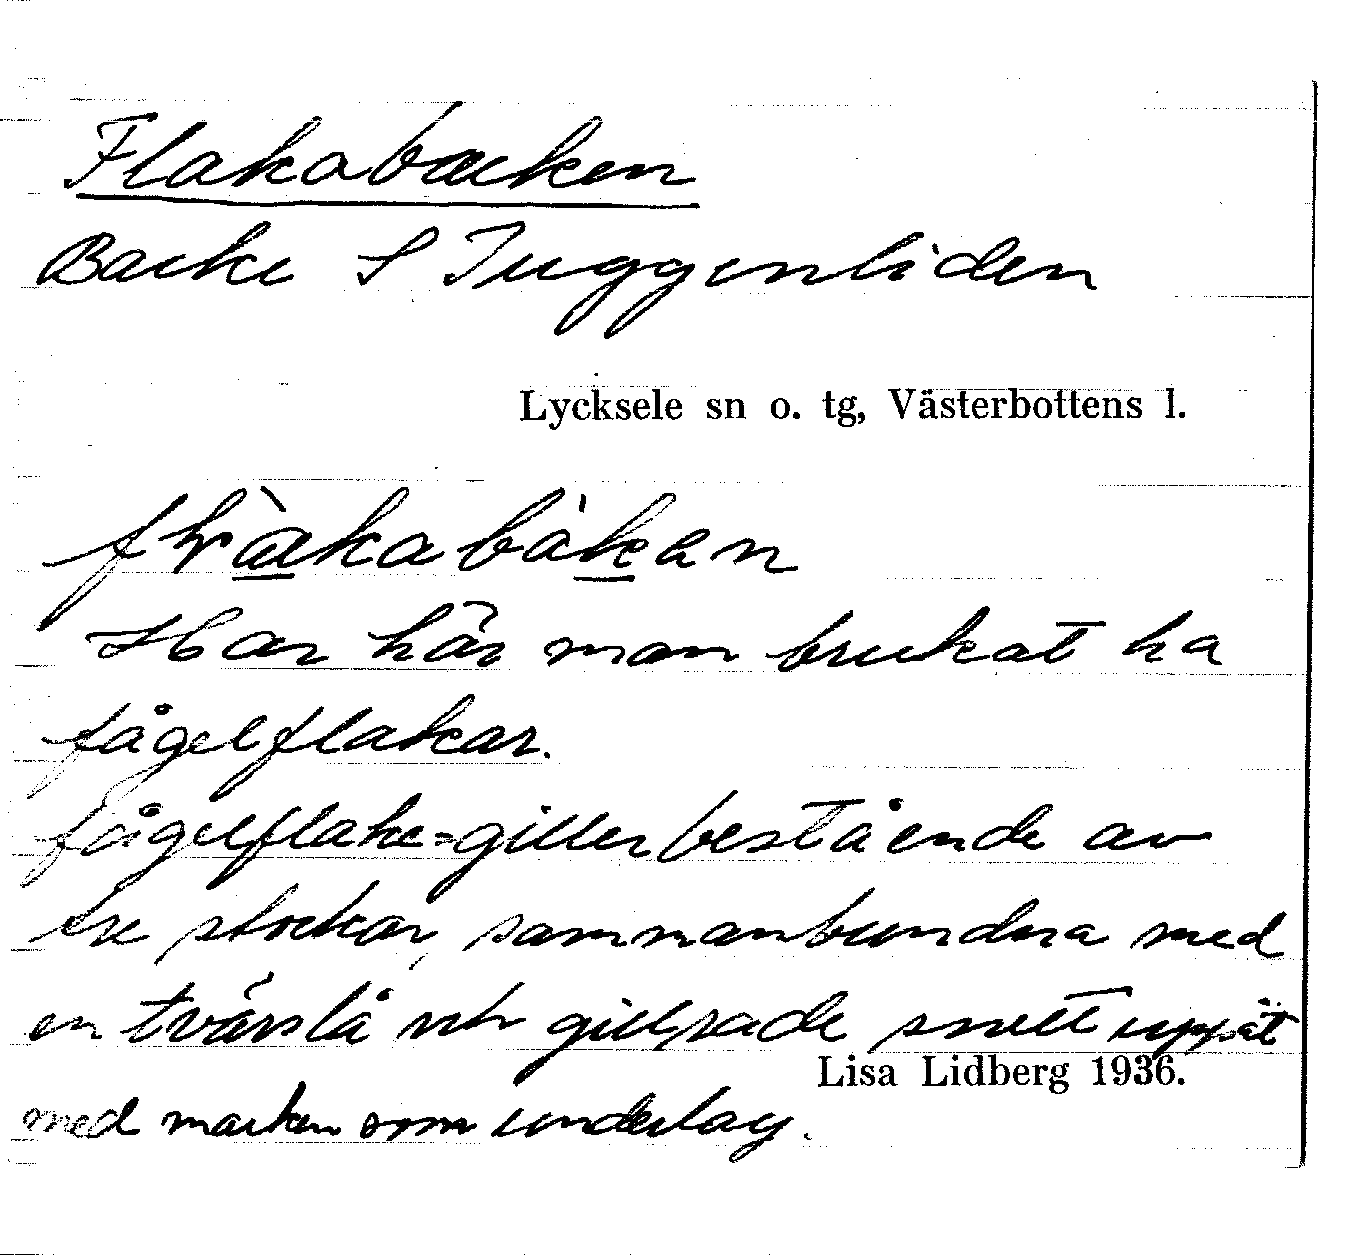 Flakabacken
Backe S Tuggenliden
Lycksele sn o. tg, Västerbottens l.
Har här man brukat ha
fågelflakar.
fågelflake=giller bestående av
tre stockar, sammanbundna med
en tvärslå och gillrade snett uppåt
Lisa Lidberg 1936.
med marken som underlag.